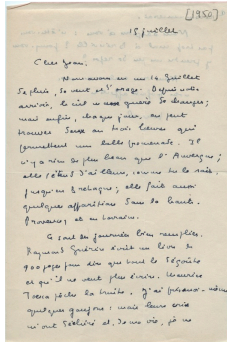 [1950]
15 juillet
Cher Jean,
Nous avons eu un 14 Juillet
de pluie, de vent et d'orage. Depuis notre
arrivée, le ciel n'a guère changé;
mais enfin, chaque jour, on peut
trouver deux ou trois heures qui
permettent une belle promenade. Il
n'y a rien de plus beau que l'Auvergne;
elle s'étend d'ailleurs, comme tu le sais,
jusqu'en Bretagne; elle fait aussi
quelques apparitions dans la haute
Provence et en Lorraine.
Ce sont des journées bien remplies.
Raymond Guérin écrit un livre de
900 pages pour dire que tout le dégoûte
et qu'il ne veut plus écrire. Maurice
pêche la truite. J'ai moi-même
quelques goujons; mais leurs cris
m'ont déchiré et, de ma vie, je ne